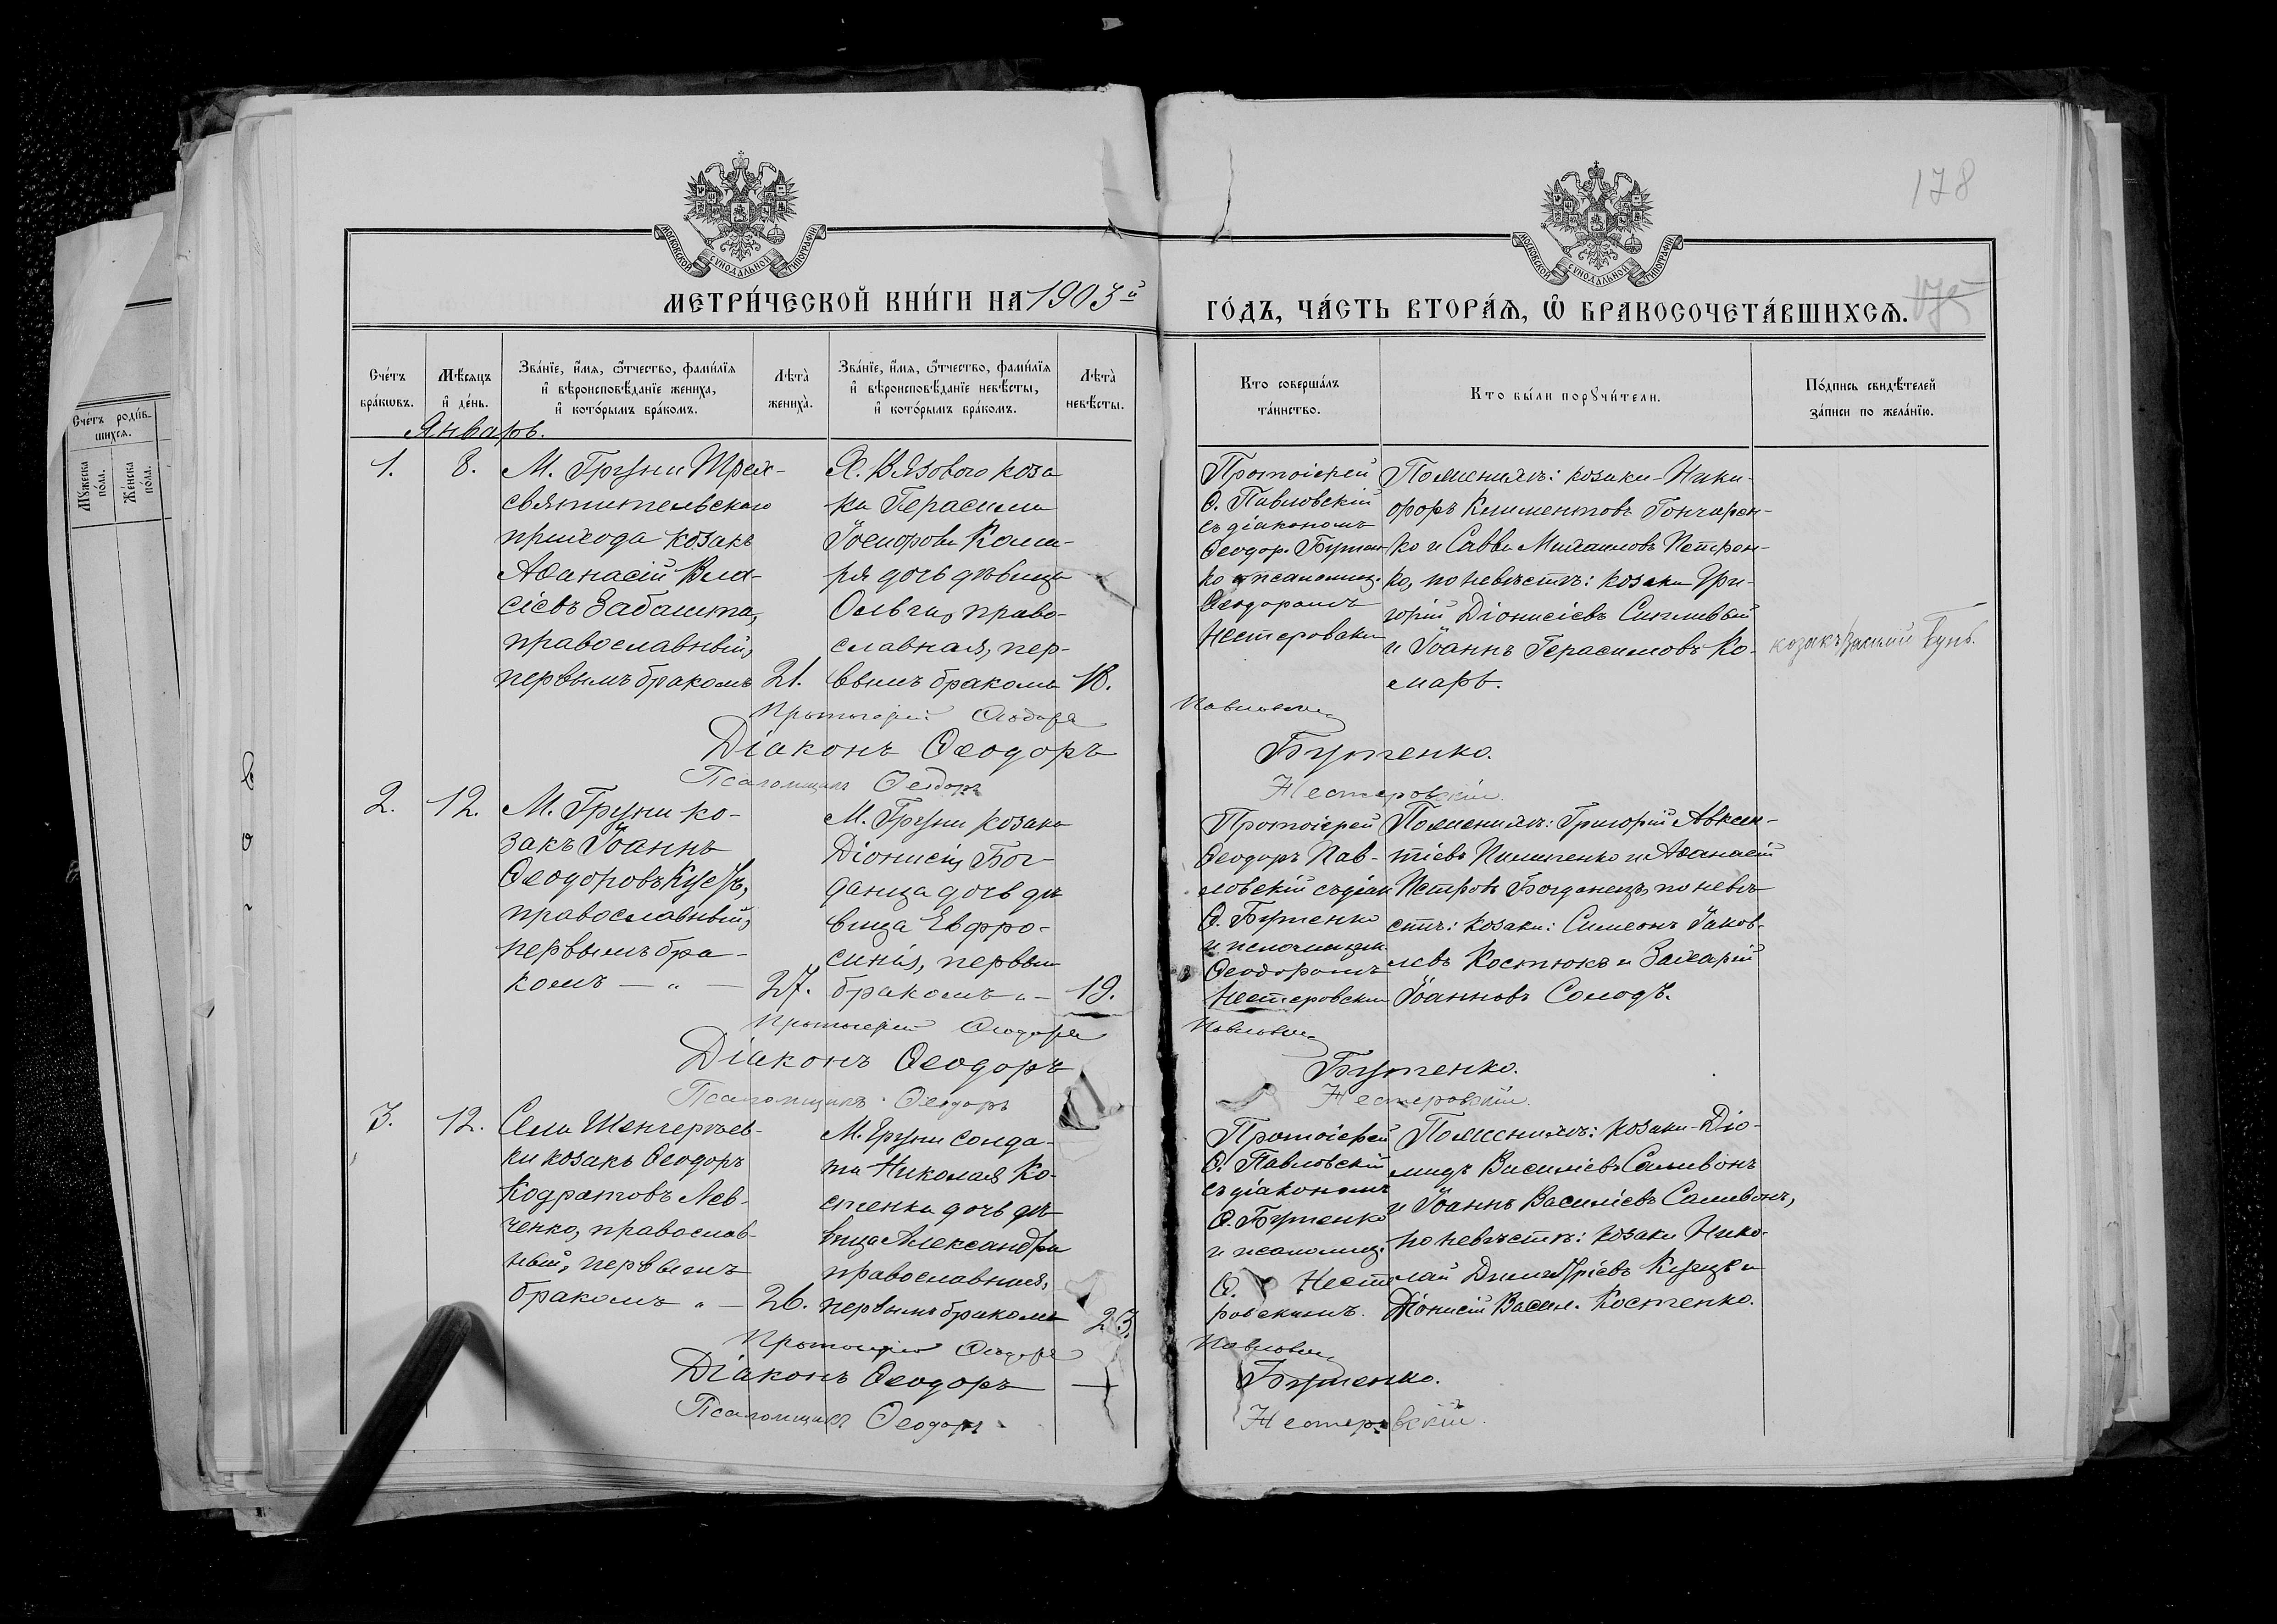 178
175
МОСКОВСКОЙ СУНОДАЛЬНОЙ ТИПОГРАФІИ
МОСКОВСКОЙ СУНОДАЛЬНОЙ ТИПОГРАФІИ
МЕТРИ́ЧЕСКОЙ КНИ́ГИ НА 1903й
ГО́ДЪ, ЧА́СТЬ ВТОРА́Я, Ѽ БРАКОСОЧЕТА́ВШИХСѦ.
Счётъ роди́в-
шихся.
Мꙋ́жеска по́ла.
Же́нска по́ла.
Сче́тъ
бра́кѡвъ.
Мѣ́сяцъ
и҆ де́нь.
Зва́нїе, и҆́мя, ѻ҆́тчество, фами́лїя
и҆ вѣроисповѣ́данїе жениха̀,
и҆ кото́рымъ бра́комъ.
Лѣ́та̀
жениха̀.
Зва́нїе, и҆́мя, ѻ҆́тчество, фами́лїя
и҆ вѣроисповѣ́данїе невѣ́сты,
и҆ кото́рымъ бра́комъ.
Лѣ́та̀
невѣ́сты.
Кто соверша́лъ
та́инство.
Кто бы́ли порꙋчи́тели.
По́дпись свидѣ́телей
за́писи по жела́нїю.
Январь.
1.
8.
М. Груни Трех-
святительскаго
прихода козакъ
Аѳанасій Вла-
сіевъ Забашта,
православный,
первымъ бракомъ
21.
Х. Вязового коза
ка Герасима
Іосифова Кома-
ря дочь дѣвица
Ольга, право-
славная, пер-
вымъ бракомъ
18.
Протоіерей
Ѳ. Павловскій
съ діакономъ
Ѳеодор. Бутен-
ко и псаломщ.
Ѳеодоромъ
Нестеровским
По женихѣ: козаки Ники-
форъ Климентовъ Гончарен-
ко и Савва Михаиловъ Петрен-
ко, по невѣстѣ: козаки Гри-
горій Діонисіевъ
и Іоаннъ Герасимовъ Ко-
марь.
козакъ Василій
Протоіерей Ѳеодоръ Павловскій
Діаконъ Ѳеодоръ Бутенко.
Псаломщикъ Ѳеодоръ Нестеровскій.
2.
12.
М. Груни ко-
закъ Іоаннъ
Ѳеодоровъ
православный,
первымъ бра-
комъ — „ —
27.
М. Груни козака
Діонисія Бог-
данца дочь дѣ
вица Евфро-
синія, первым
бракомъ „ —
19.
Протоіерей
Ѳеодоръ Пав-
ловскій съ діак
Ѳ. Бутенко
и псаломщик
Ѳеодоромъ
Нестеровским
По женихѣ: Григорій Авксен-
тіевъ Пилипенко и Аѳанасій
Петровъ Богданецъ, по невѣ-
стѣ: козаки: Симеонъ Іаков-
левъ Костюкъ и Захарій
Іоанновъ Солодъ.
Протоіерей Ѳеодоръ Павловскій
Діаконъ Ѳеодоръ Бутенко.
Псаломщикъ Ѳеодоръ Нестеровскій.
3.
12.
Села Шенгеріев-
ки козакъ Ѳеодоръ
Кодратовъ Лев-
ченко, православ-
ный, первымъ
бракомъ „ —
26.
М. Груни солда-
та Николая Ко-
стенка дочь дѣ
вица Александра
православная,
первымъ бракомъ
23.
Протоіерей
Ѳ. Павловскій
съ діакономъ
Ѳ. Бутенко
и псаломщ.
Ѳ. Несте
ровскимъ.
По женихѣ: козаки Діо-
мидъ Василіевъ Саливонъ
и Іоаннъ Василіевъ Саливонъ,
по невѣстѣ: козаки Нико-
лай Димитріевъ и
Діонисій Васил. Костенко.
Протоіерей Ѳеодоръ Павловскій
Діаконъ Ѳеодоръ Бутенко.
Псаломщикъ Ѳеодоръ Нестеровскій.